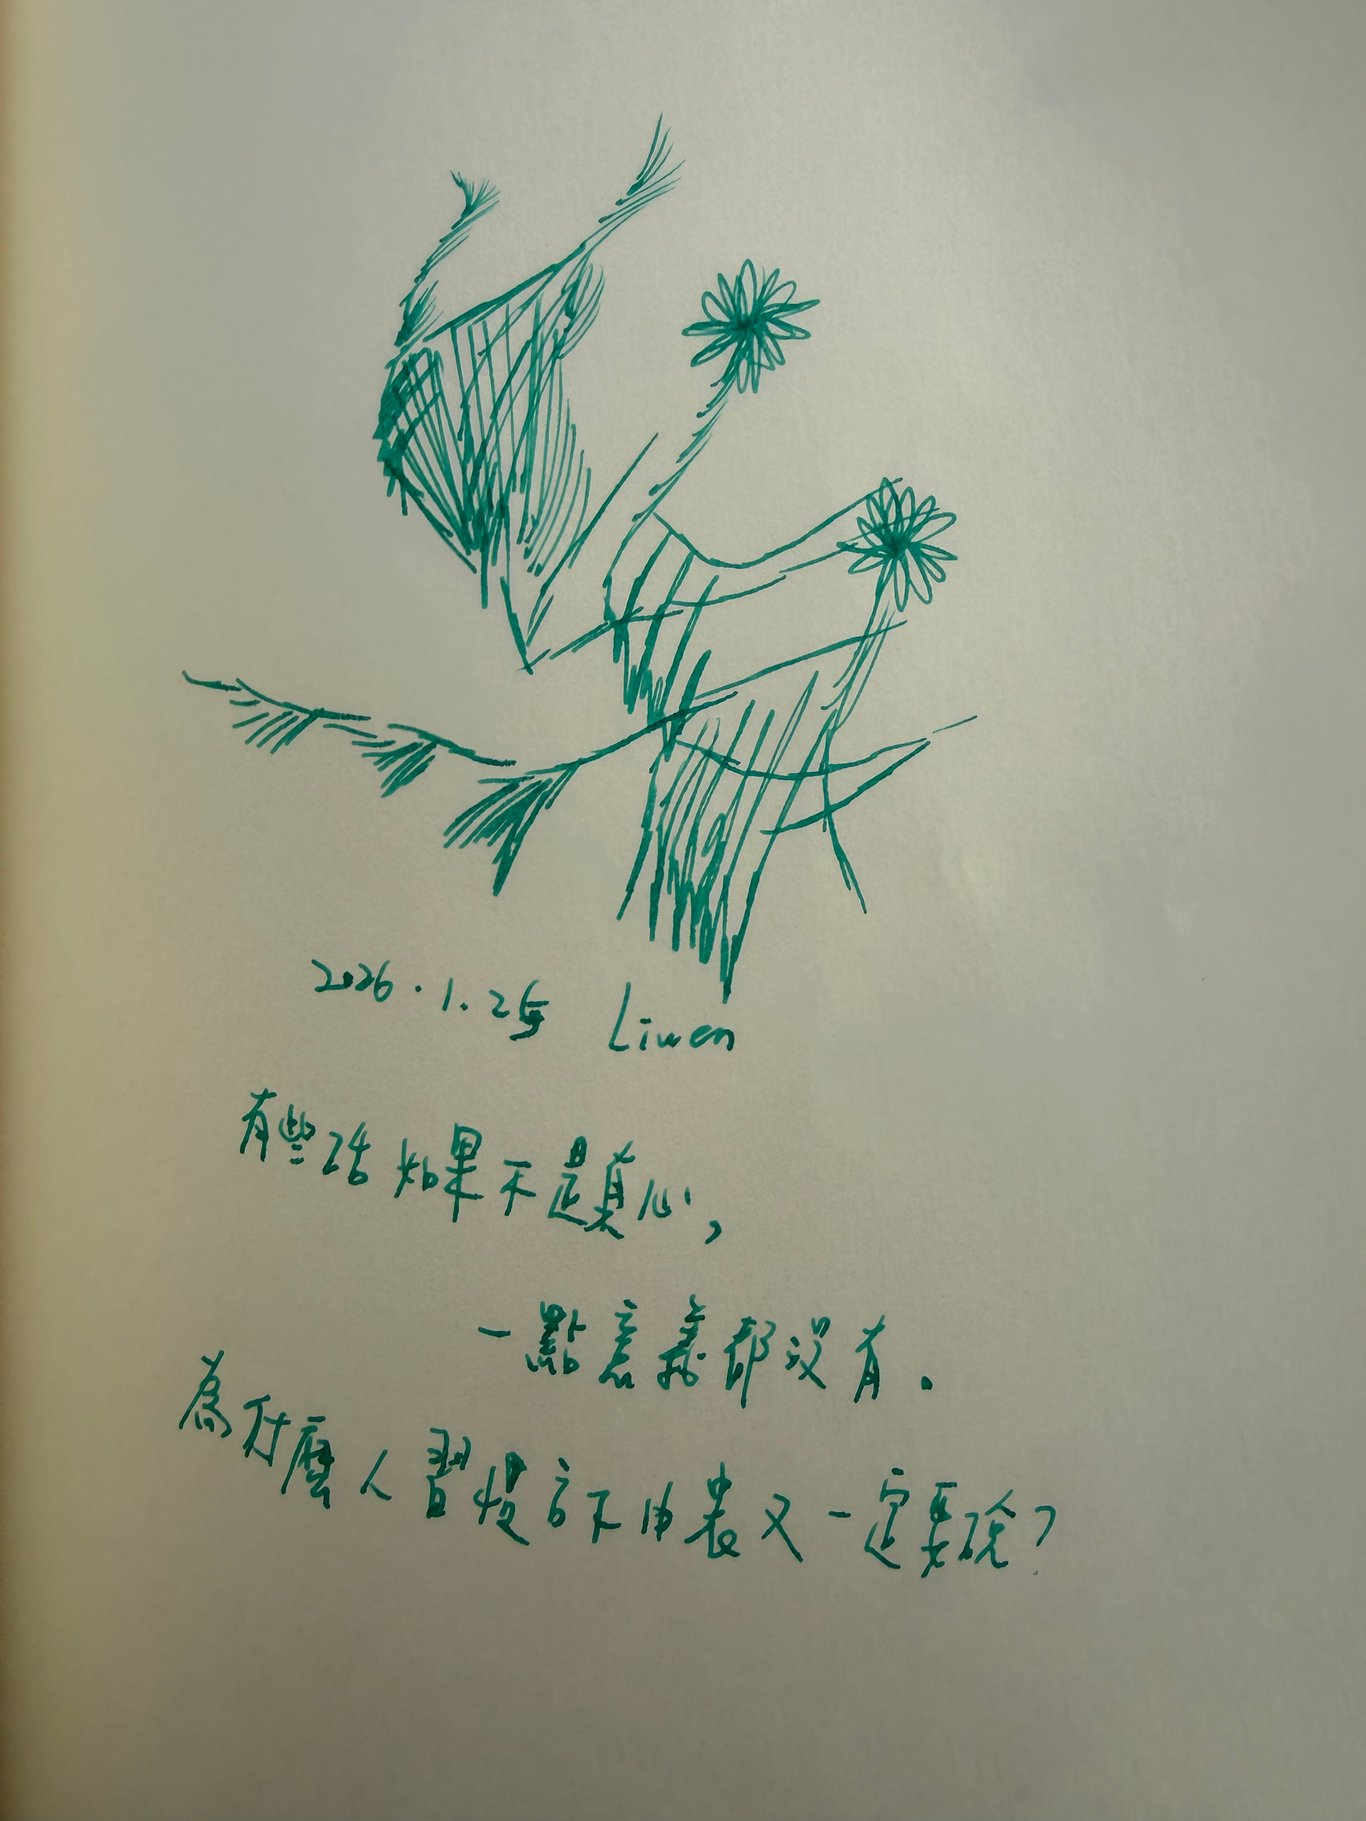 2026.1.25 Liwen
有些話如果不是真心,
一點意義都沒有.
為什麼人習慣言不由衷又一定要說?